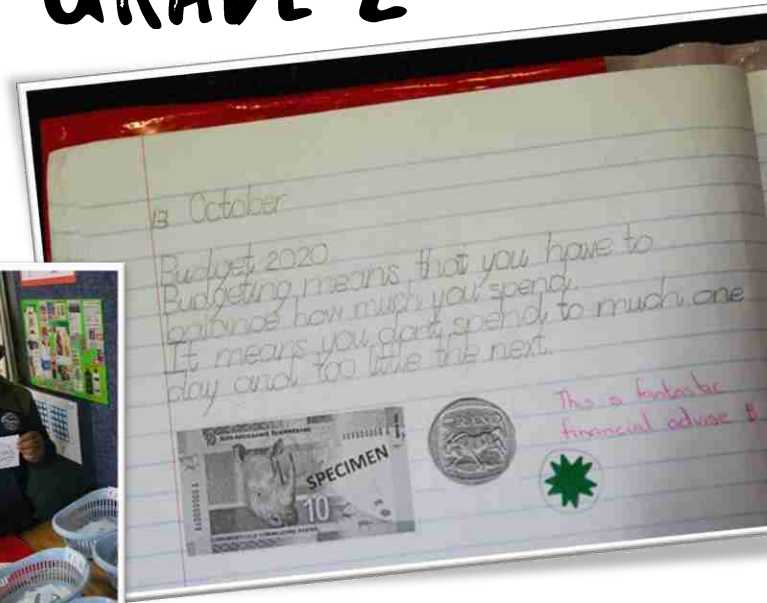 GRADE 2
13 October
Budget 2020
Budgeting means that you have to
balance how much you spend.
It means you dont spend to much one
day and too little the next.
SPECIMEN
10
This is fantastic
financial advise